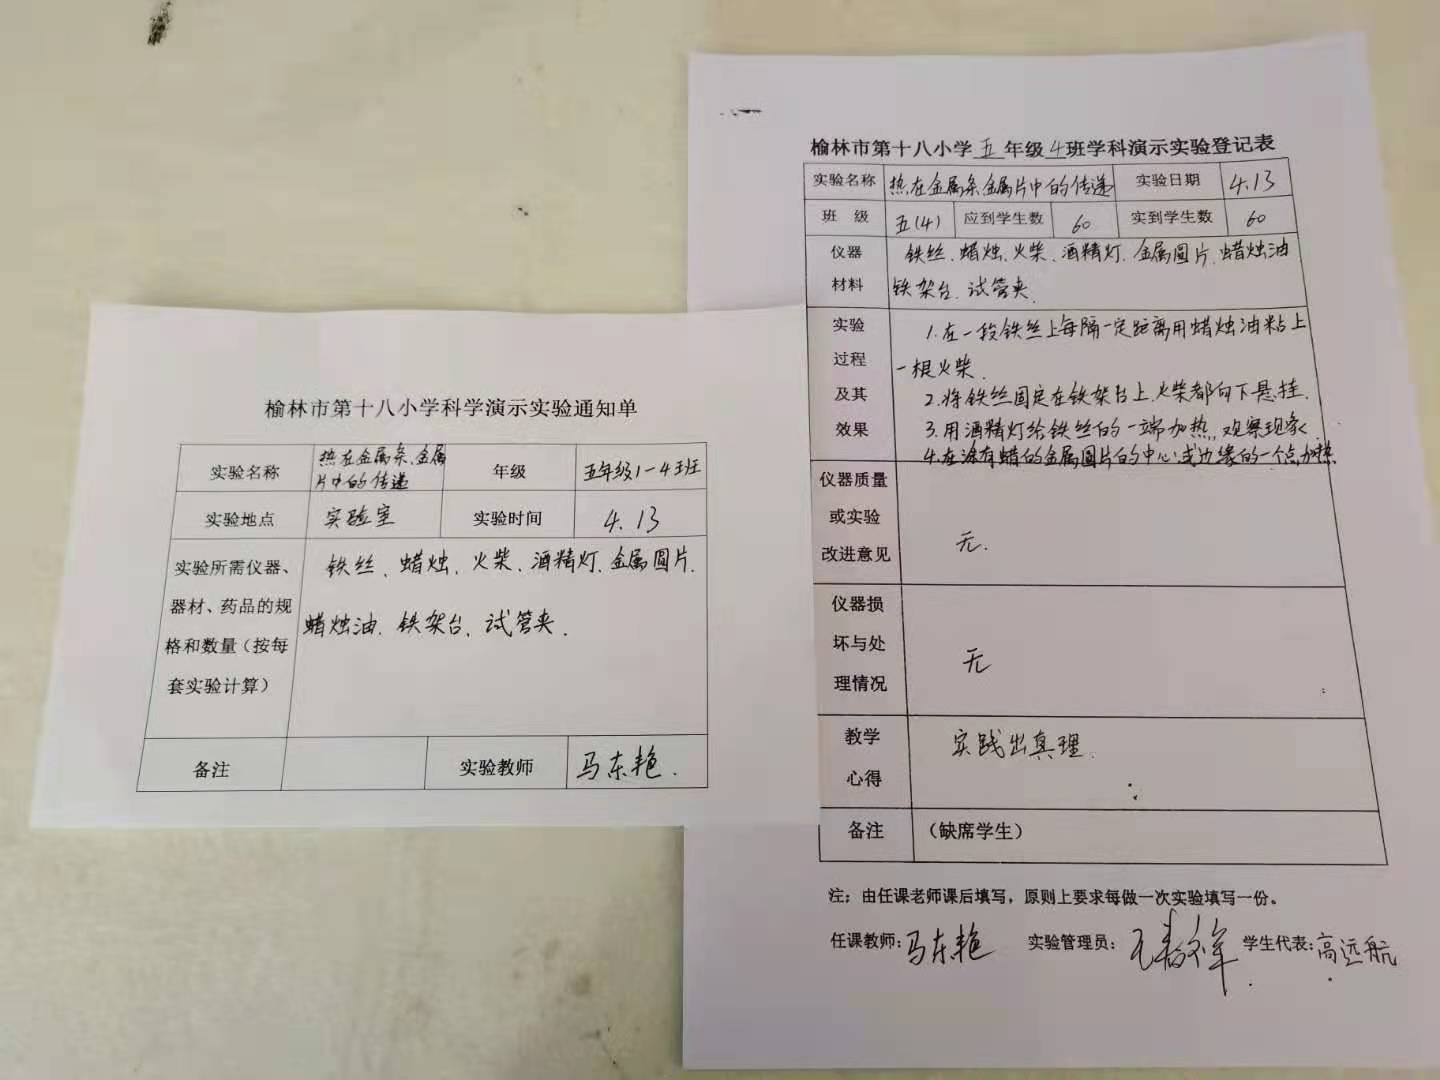 榆林市第十八小学科学演示实验通知单
实验名称 热在金属条、金属片中的传递 年级 五年级1-4班
实验地点 实验室 实验时间 4.13
实验所需仪器、器材、药品的规格和数量（按每套实验计算）
铁丝、蜡烛、火柴、酒精灯、金属圆片、
蜡烛油、铁架台、试管夹.
备注 实验教师 马东艳.
榆林市第十八小学五年级4班学科演示实验登记表
实验名称 热在金属条金属片中的传递 实验日期 4.13
班 级 五(4) 应到学生数 60 实到学生数 60
仪器材料
铁丝、蜡烛、火柴、酒精灯、金属圆片、蜡烛油
铁架台、试管夹.
实验过程及其效果
1.在一段铁丝上每隔一定距离用蜡烛油粘上
一根火柴.
2.将铁丝固定在铁架台上,火柴都向下悬挂.
3.用酒精灯给铁丝的一端加热,观察现象
4.在涂有蜡的金属圆片的中心或边缘的一个点加热
仪器质量或实验改进意见 无.
仪器损坏与处理情况 无
教学心得 实践出真理.
备注 （缺席学生）
注：由任课老师课后填写，原则上要求每做一次实验填写一份。
任课教师：马东艳 实验管理员： 学生代表：高远航